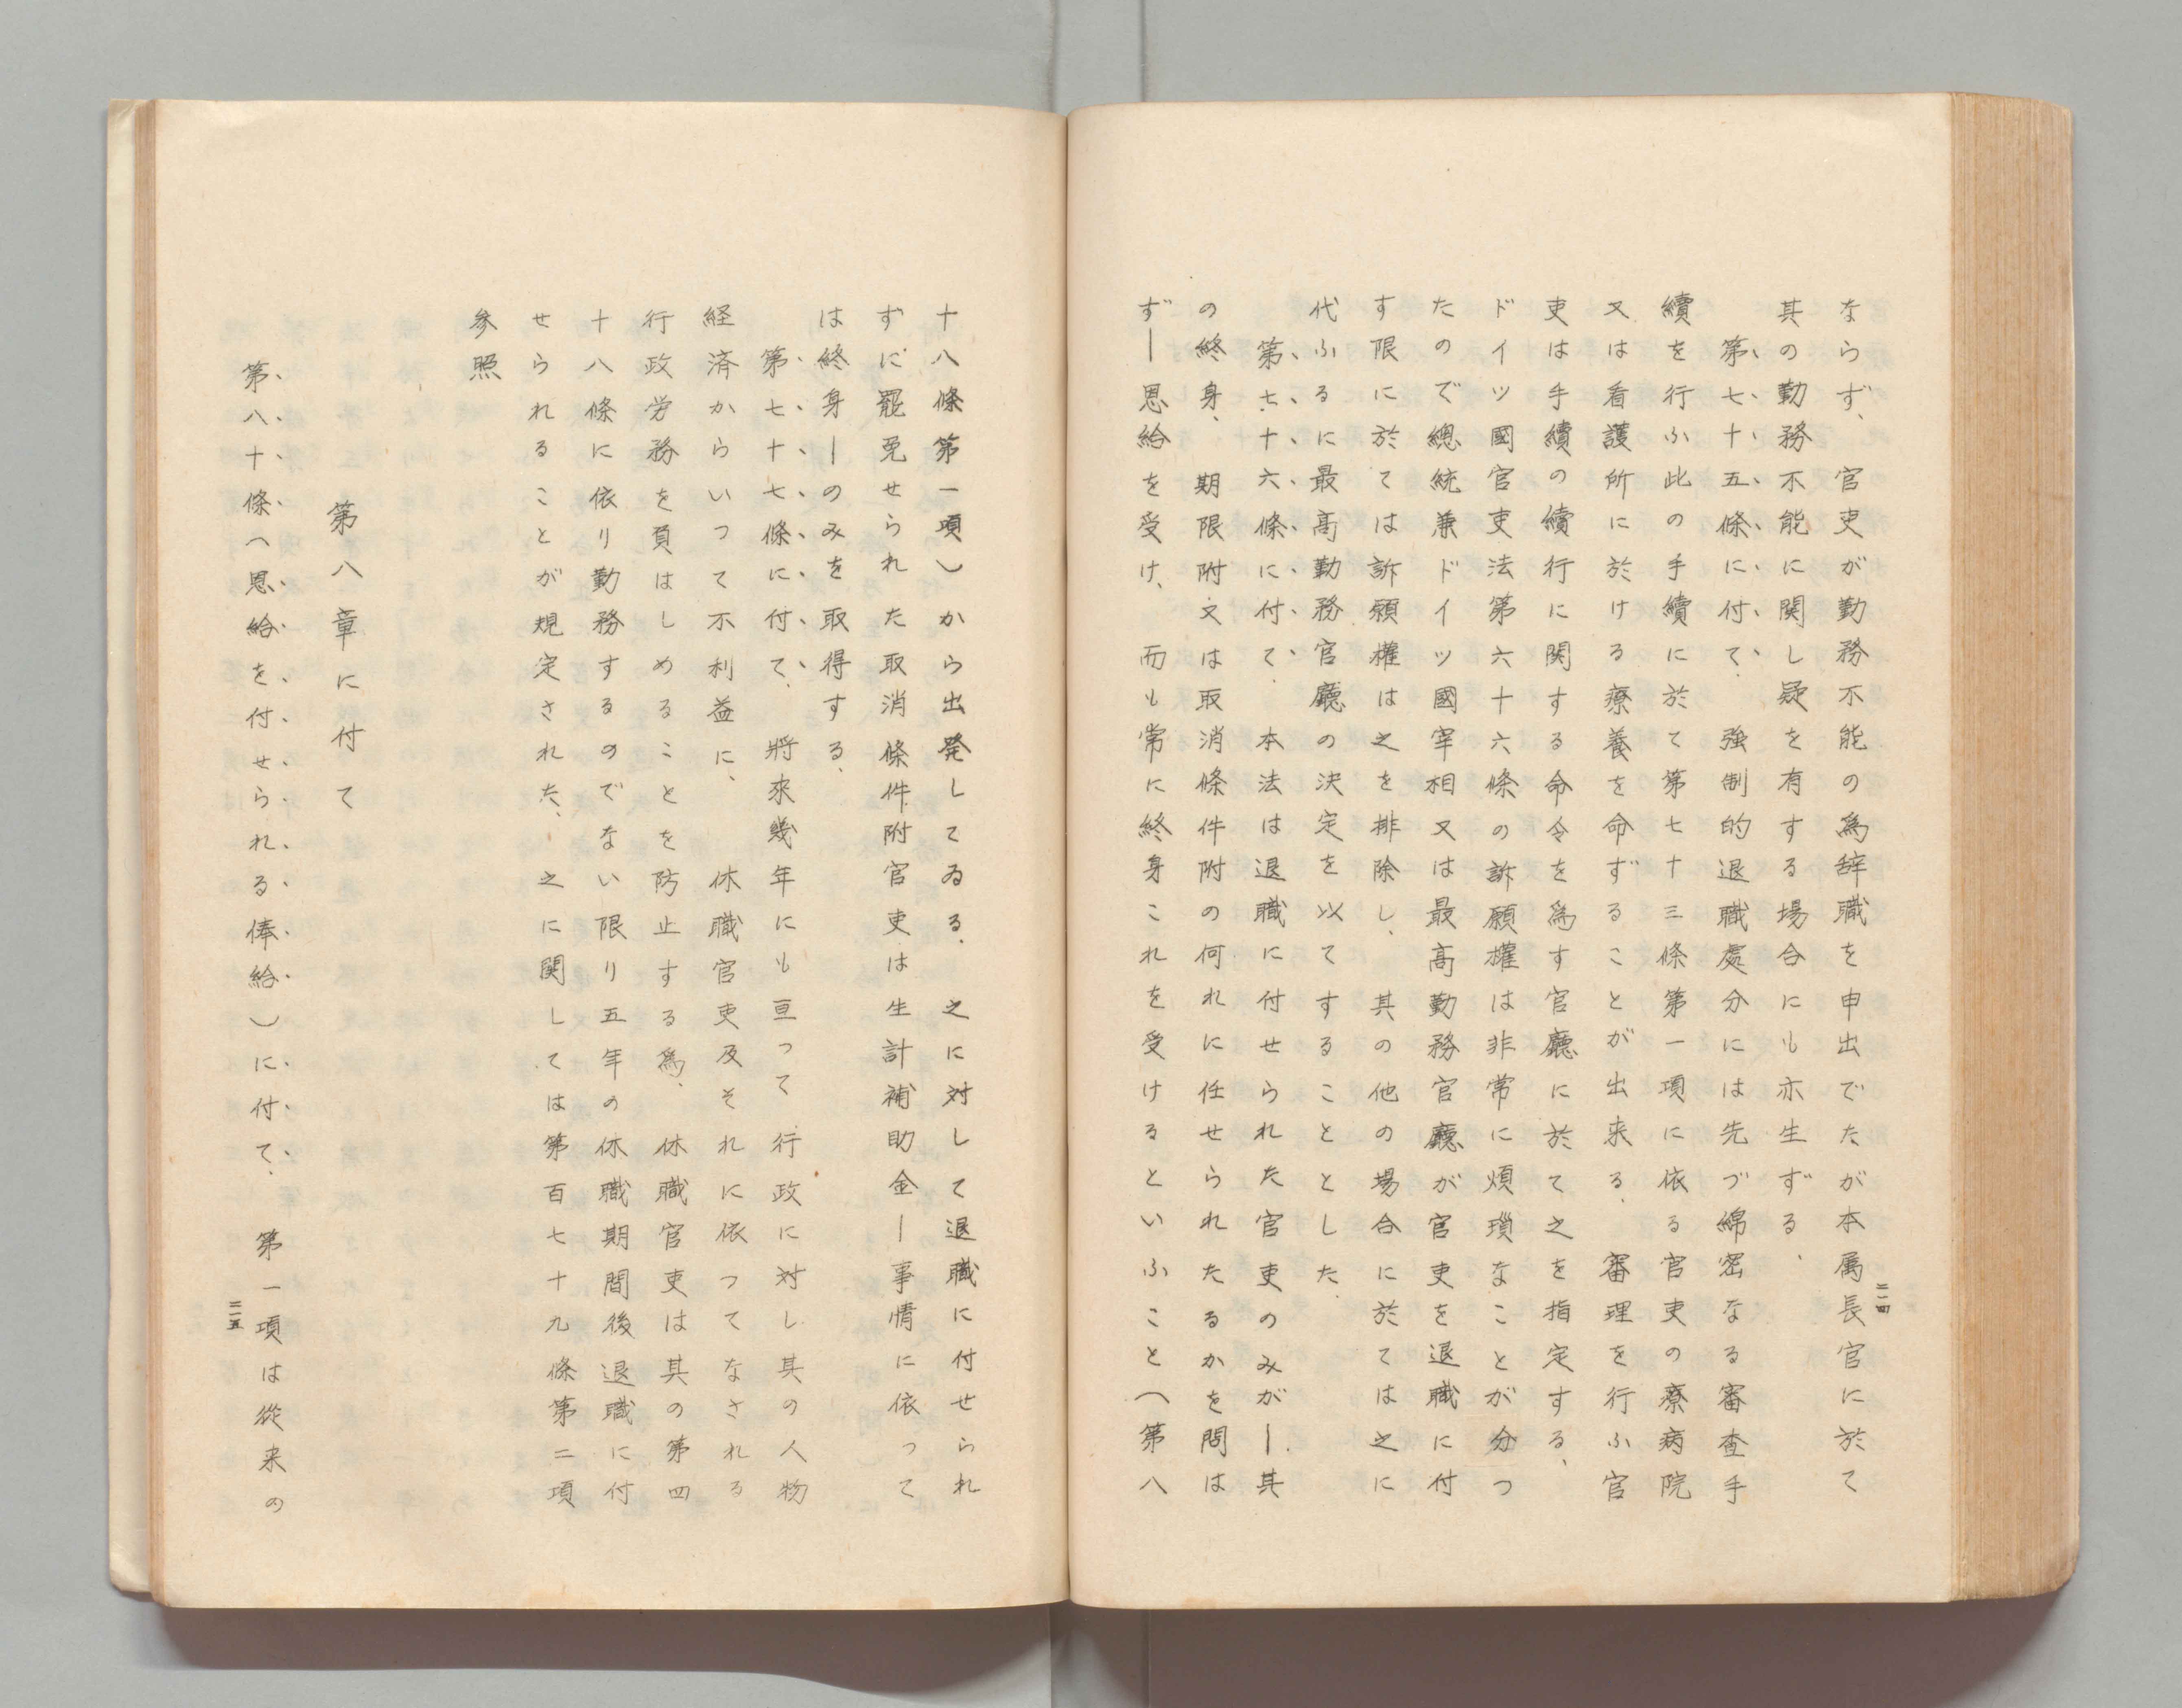 ならず、官吏が勤務不能の爲辞職を申出でたが本属長官に於て
其の勤務不能に関し疑を有する場合にも亦生ずる、
第七十五條に付て、強制的退職處分には先づ綿密なる審査手
續を行ふ此の手續に於て第七十三條第一項に依る官吏の療病院
又は看護所に於ける療養を命ずることが出来る、審理を行ふ官
吏は手續の續行に関する命令を爲す官廳に於て之を指定する、
ドイツ國官吏法第六十六條の訴願權は非常に煩瑣なことが分つ
たので總統兼ドイツ國宰相又は最高勤務官廳が官吏を退職に付
す限に於ては訴願權は之を排除し、其の他の場合に於ては之に
代ふるに最高勤務官廳の決定を以てすることとした、
第七十六條に付て、本法は退職に付せられた官吏のみが―其
の終身、期限附又は取消條件附の何れに任せられたるかを問は
ず―恩給を受け、而も常に終身これを受けるといふこと（第八
二一四
十八條第一項）から出発してゐる、之に対して退職に付せられ
ずに罷免せられた取消條件附官吏は生計補助金―事情に依って
は終身―のみを取得する、
第七十七條に付て、將來幾年にも亘って行政に対し其の人物
経済からいつて不利益に、休職官吏及それに依つてなされる
行政労務を負はしめることを防止する爲、休職官吏は其の第四
十八條に依り勤務するのでない限り五年の休職期間後退職に付
せられることが規定された、之に関しては第百七十九條第二項
参照
第八章に付て
第八十條（恩給を付せられる俸給）に付て、第一項は從来の
二一五